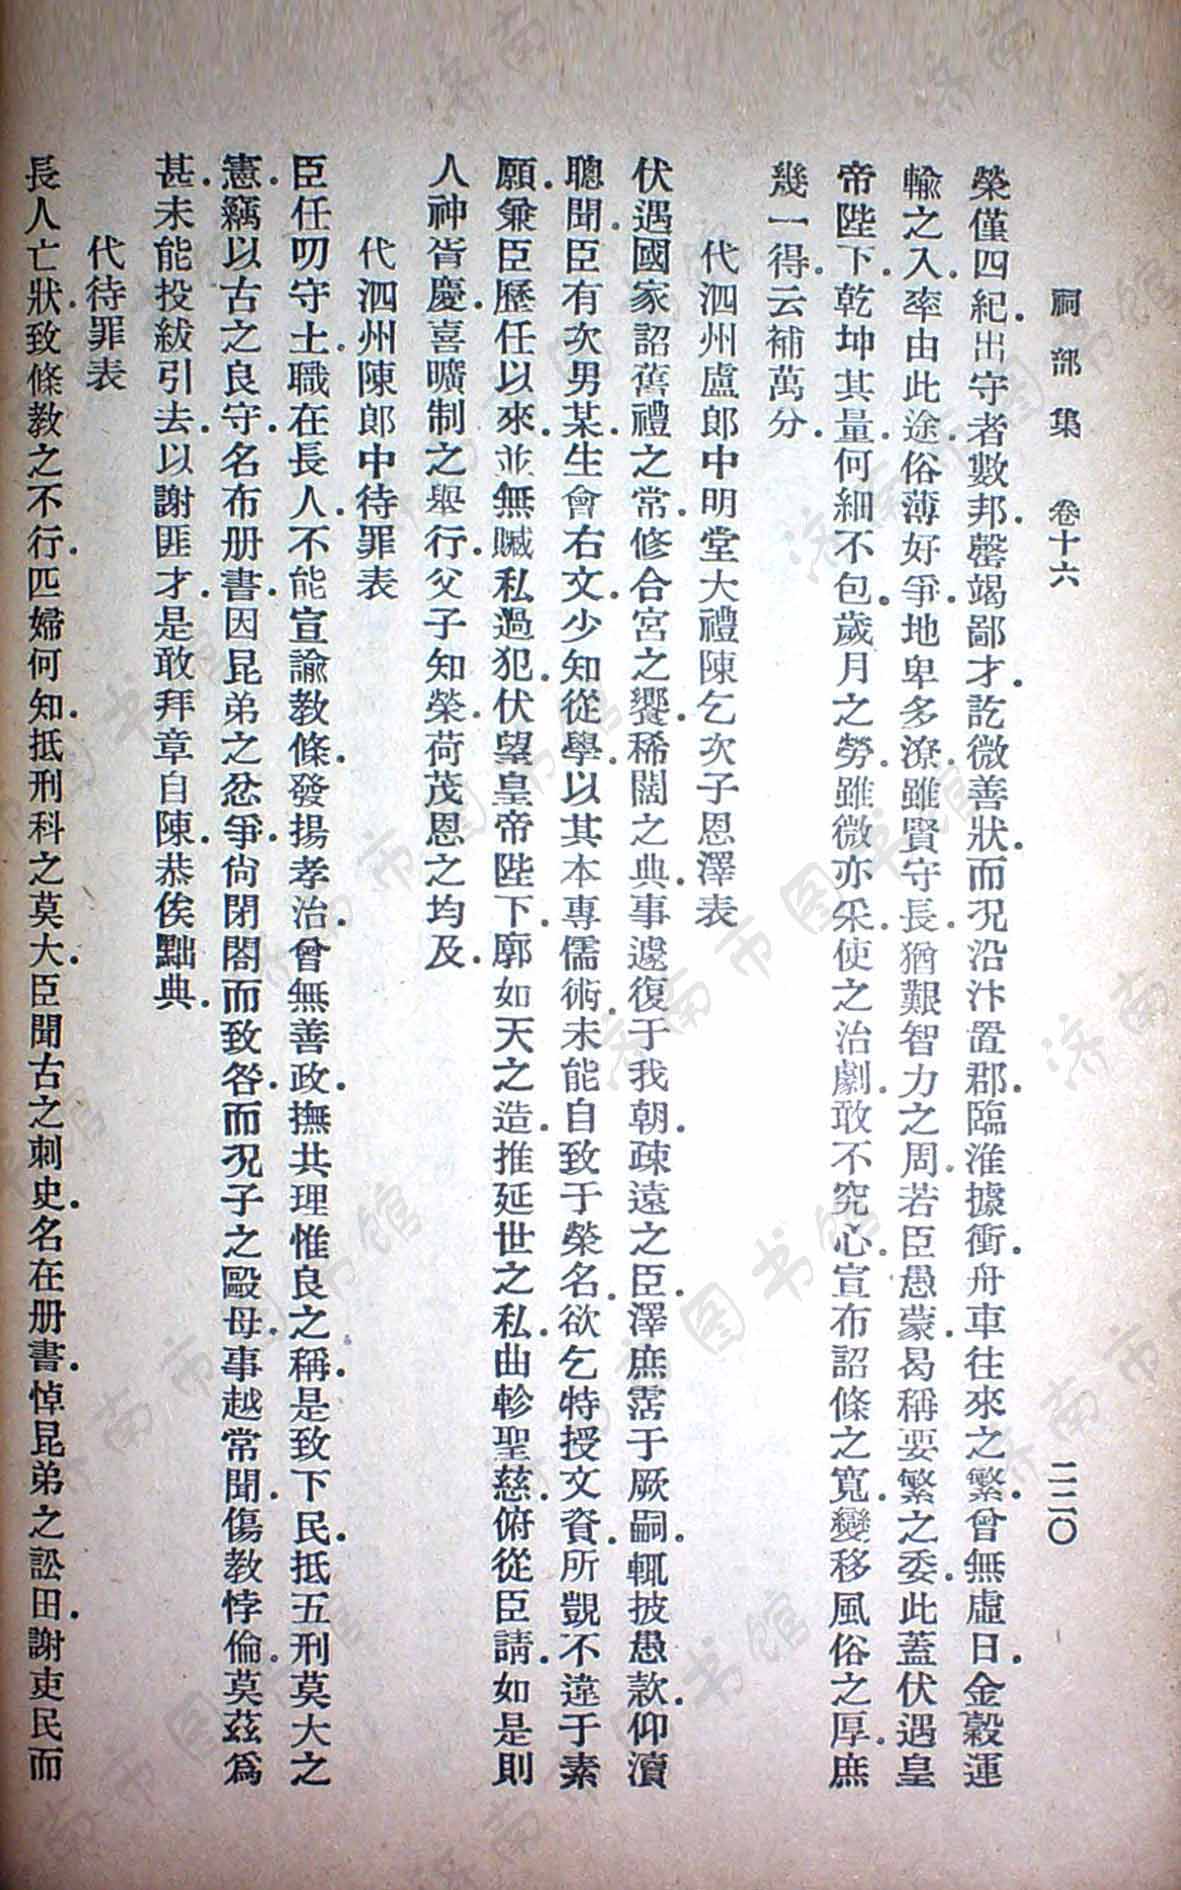 祠部集　卷十六　二二〇
榮僅四紀出守者數邦.罄竭鄙才.訖微善狀.而況沿汴置郡.臨淮據衝.舟車往來之繁.曾無虛日.金穀運
輸之入.率由此途.俗薄好爭.地卑多潦.雖賢守長.猶艱智力之周.若臣愚蒙.曷稱要繁之委.此蓋伏遇皇
帝陛下.乾坤其量.何細不包.歲月之勞.雖微亦采.使之治劇.敢不究心.宣布詔條之寬.變移風俗之厚.庶
幾一得.云補萬分.
代泗州盧郎中明堂大禮陳乞次子恩澤表
伏遇國家詔舊禮之常.修合宮之饗.稀闊之典.事遽復于我朝.疎遠之臣.澤庶霑于厥嗣.輒披愚款.仰瀆
聰聞.臣有次男某.生會右文.少知從學.以其本專儒術.未能自致于榮名.欲乞特授文資.所覬不違于素
願.兼臣歷任以來.並無贓私過犯.伏望皇帝陛下.廓如天之造.推延世之私.曲軫聖慈.俯從臣請.如是則
人神胥慶.喜曠制之舉行.父子知榮.荷茂恩之均及.
代泗州陳郎中待罪表
臣任叨守土.職在長人.不能宣諭教條.發揚孝治.曾無善政.撫共理惟良之稱.是致下民.抵五刑莫大之
憲.竊以古之良守.名布册書.因昆弟之忿爭.尙閉閤而致咎.而況子之毆母.事越常聞.傷教悖倫.莫茲爲
甚.未能投紱引去.以謝匪才.是敢拜章自陳.恭俟黜典.
代待罪表
長人亡狀.致條教之不行.匹婦何知.抵刑科之莫大.臣聞古之刺史.名在册書.悼昆弟之訟田.謝吏民而
济南市图书馆